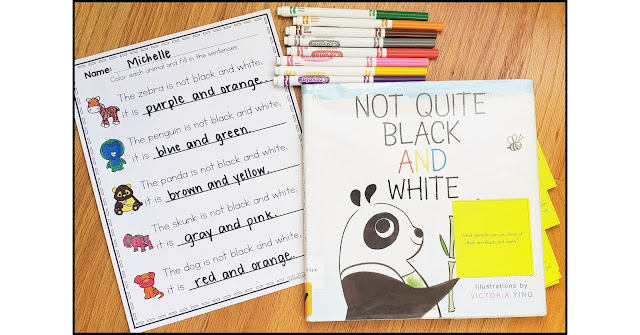 Name: Michelle
Color each animal and fill in the sentences.
The zebra is not black and white,
it is purple and orange.
The penguin is not black and white,
it is blue and green.
The panda is not black and white,
it is brown and yellow.
The skunk is not black and white,
it is gray and pink.
The dog is not black and white,
it is red and orange.
Crayola
Crayola
NOT QUITE
BLACK
AND
WHITE
What animals can you think of
that are black and white?
illustrations by
VICTORIA YING